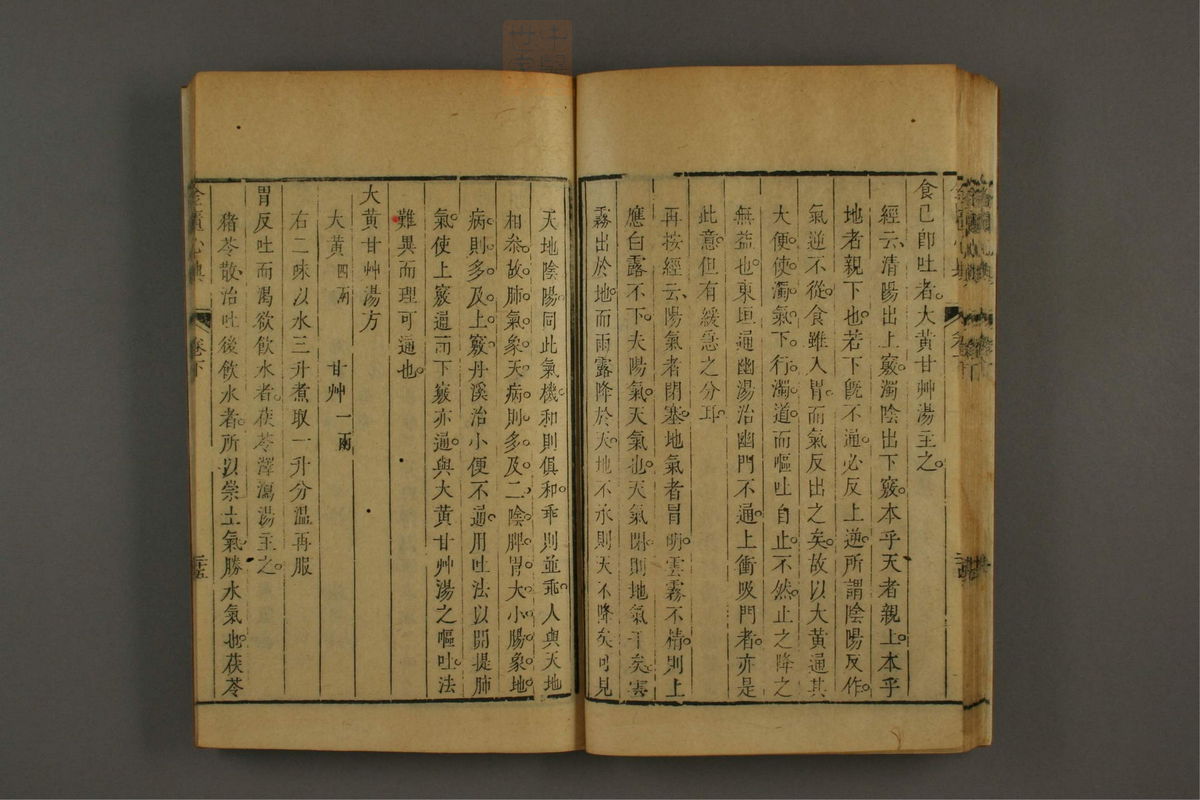 食已卽吐者。大黃甘艸湯主之。
經云、淸陽出上竅。濁陰出下竅。本乎天者親上。本乎
地者親下也。若下旣不通。必反上逆。所謂陰陽反作。
氣逆不從。食雖入胃。而氣反出之矣。故以大黃通其
大便。使濁氣下行。濁道而嘔吐自止。不然。止之降之
無益也。東垣通幽湯治幽門不通。上衝吸門者。亦是
此意。但有緩急之分耳。
再按經云、陽氣者閉塞。地氣者冒明。雲霧不精。則上
應白露不下。夫陽氣。天氣也。天氣閉。則地氣干矣。雲
霧出於地。而雨露降於天。地不承則天不降矣。可見
天地陰陽。同此氣機。和則俱和。乖則並乖。人與天地
相叅。故肺氣象天。病則多及二陰。脾胃大小腸象地。
病則多及上竅。丹溪治小便不通。用吐法以開提肺
氣。使上竅通而下竅亦通。與大黃甘艸湯之嘔吐。法
難異而理可通也。
大黃甘艸湯方
大黃四兩 甘艸一兩
右二味以水三升煮取一升分溫再服
胃反吐而渴欲飮水者。茯苓澤瀉湯主之。
豬苓散。治吐後飮水者。所以崇土氣。勝水氣也。茯苓
金匱心典 卷下 二十五